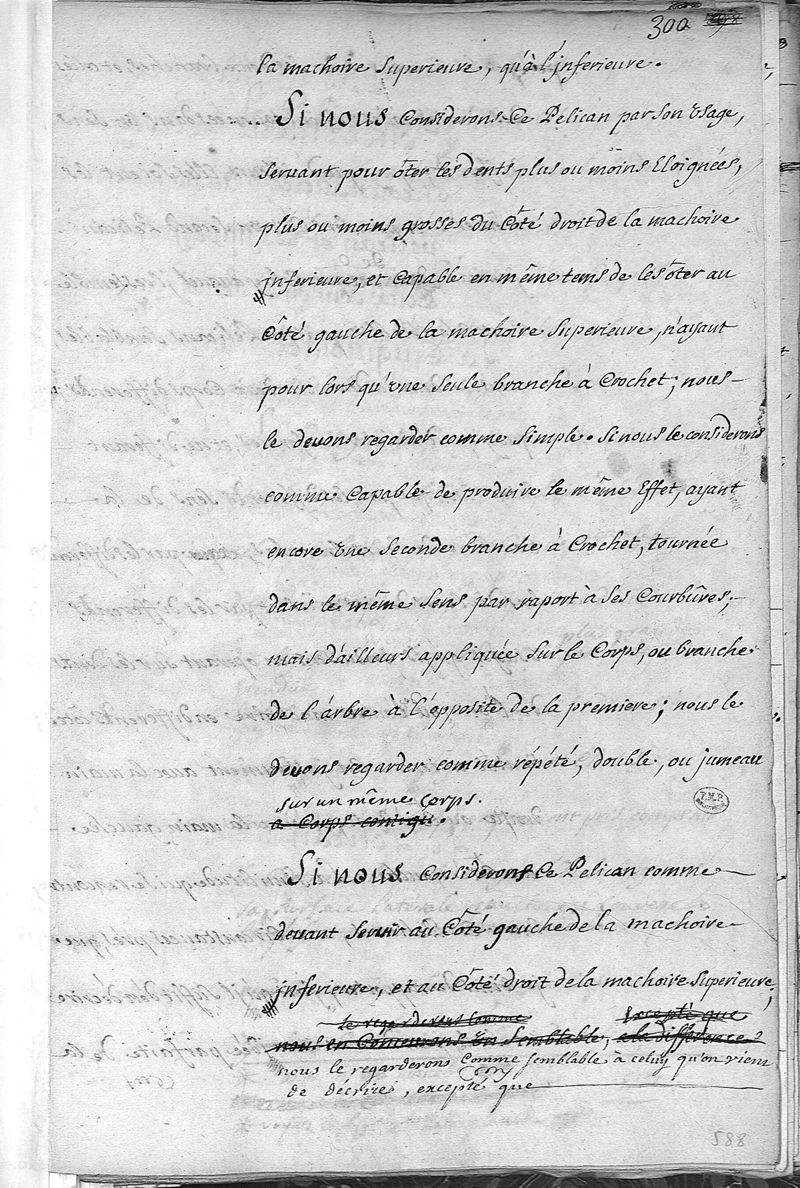 300
la machoire Superieure, qu'à l'jnferieure.
Si nous Considerons Ce Pelican par son Vsage,
Seruant pour ôter les dents plus ou moins Eloignées,
plus ou moins grosses du Côté droit de la machoire
jnferieure, et Capable en même tems de les ôter au
Côté gauche de la machoire Superieure, n'ayant
pour lors qu'vne Seule branche à Crochet; nous
le deuons regarder comme Simple. Si nous le considerons
comme Capable de produire le même Effet, ayant
encore vne Seconde branche à Crochet, tournée
dans le même Sens par raport à Ses Courbûres;
mais d'ailleurs appliquée Sur le Corps, ou branche
de l'árbre à l'épposite de la premiere; nous le
deuons regarder comme répété, double, ou jumeau
sur un même Corps.
a Corps contigu.
Si nous Considerons Ce Pelican comme
deuant Seruir au Côté gauche de la machoire
jnferieure, et au Côté droit de la machoire Superieure;
le regarderons comme Excepté que
nous en Conceurons Vn Semblable, a la différence
nous le regarderons Comme Semblable à celuy qu'on vient
de décrire, excepté que
588